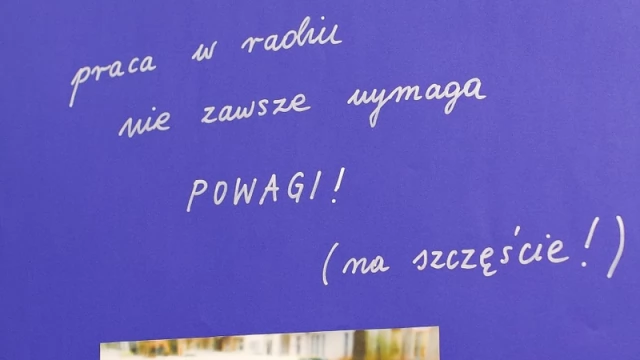 praca w radiu
nie zawsze wymaga
POWAGI!
(na szczęście!)